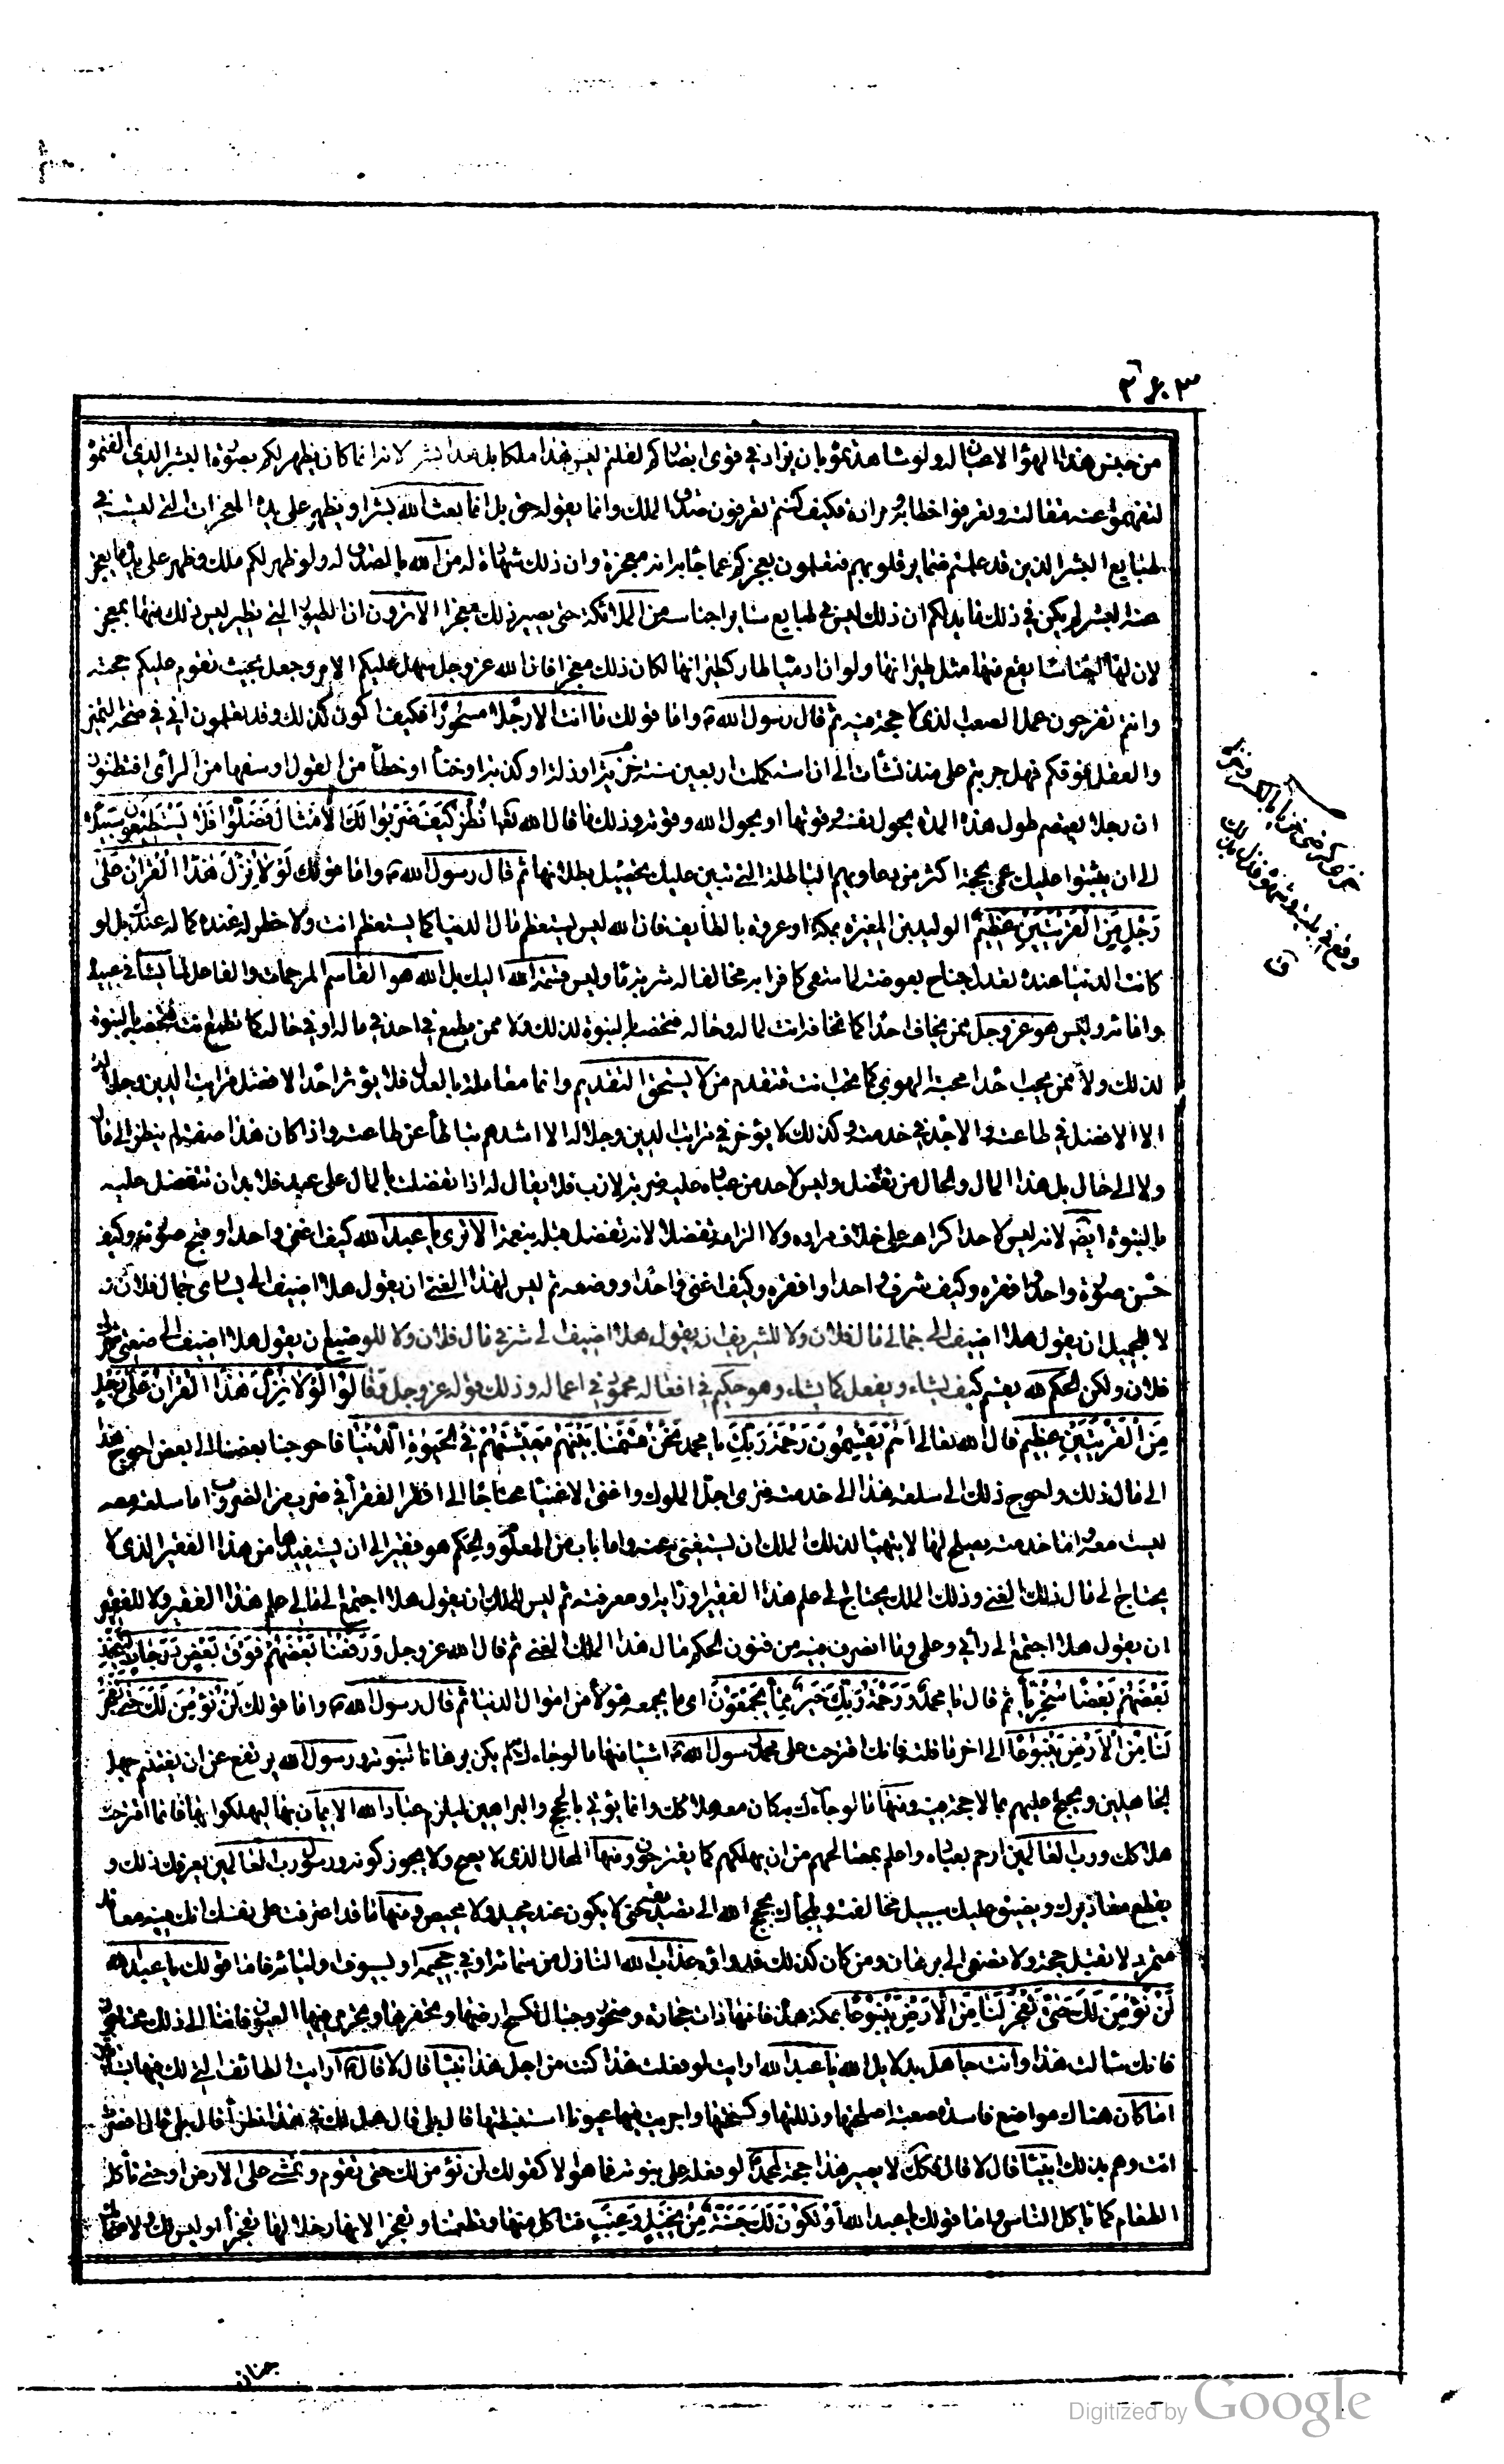 ٣٠٣
من جنس هذا الهواء لا عيان له ولو شاهدتموه بان يزاد في قوى ابصاركم لقلتم ليس هذا ملكا بل هذا بشر لانه انما كان يظهر لكم بصورة البشر الذي الفتموه
لتفهموا عنه مقالته وتعرفوا خطابه ومراده فكيف كنتم تعرفون صدق الملك وانما يقوله حق بل انما بعث الله بشرا ويظهر على يده المعجزات التي ليست في
طبايع البشر الذين قد علمتم ضماير قلوبهم فتعلمون بعجزكم عما جاء به انه معجزة وان ذلك شهادة له من الله بالصدق له ولو ظهر لكم ملك وظهر على يده ما يعجز
عنه البشر لم يكن في ذلك ما يدلكم ان ذلك ليس في طبايع ساير اجناسه من الملائكة حتى يصير ذلك معجزا الا ترون ان الطيور التي تطير ليس ذلك منها بمعجز
لان لها اجناسا يقع منها مثل طيرانها ولو ان ادميا طار كطيرانها لكان ذلك معجزا فان الله عز وجل سهل عليكم الامر وجعله بحيث تقوم عليكم حجته
وانتم تقترحون عمل الصعب الذي لا حجة فيه ثم قال رسول الله ص واما قولك ما انت الا رجلا مسحورا فكيف اكون كذلك وقد تعلمون اني في صحة التميز
والعقل فوقكم فهل جربتم علي منذ نشأت الى ان استكملت اربعين سنة خزية او ذلة او كذبة او خنأ او خطأ من القول او سفها من الرأى اتظنون
ان رجلا يعتصم طول هذه المدة بحول نفسه وقوتها او بحول الله وقوته وذلك ما قال الله تعالى انظر كيف ضربوا لك الامثال فضلوا فلا يستطيعون سبيلا
الى ان يثبتوا عليك عمى بحجة اكثر من دعاويهم الباطلة التي تبين عليك تحصيل بطلانها ثم قال رسول الله ص واما قولك لولا نزل هذا القران على
رجل من القريتين عظيم الوليد بن المغيرة بمكة او عروة بالطايف فان الله ليس يستعظم مال الدنيا كما يستعظم انت ولا خطر له عنده كما له عندك بل لو
كانت الدنيا عنده تعدل جناح بعوضة لما سقى كافرا به مخالفا له شربة ماء وليس قسمة الله اليك بل الله هو القاسم للرحمات والفاعل لما يشاء في عبيده
وامائه وليس هو عز وجل ممن يخاف احدا كما تخافه انت لماله وحاله فتخصه بالنبوة لذلك ولا ممن يطمع في احد في ماله او في حاله كما تطمع انت فتخصه بالنبوة
لذلك ولا ممن يحب احدا محبة الهوى كما تحب انت فتقدم من لا يستحق التقديم وانما معاملته بالعدل فلا يؤثر احدا لافضل مراتب الدين وجلاله
الا الافضل في طاعته والاجد في خدمته وكذلك لا يؤخر في مراتب الدين وجلاله الا اشدهم تباطأ عن طاعته واذا كان هذا صفته لم ينظر الى مال
ولا الى حال بل هذا المال والحال من تفضله وليس لاحد من عباده عليه ضربة لازب فلا يقال له اذا تفضلت بالمال على عبد فلا بد ان تتفضل عليه
بالنبوة ايضا لانه ليس لاحد اكراهه على خلاف مراده ولا الزامه تفضلا لانه تفضل قبله بنعمة الا ترى يا عبد الله كيف اغنى واحدا وقبح صورته وكيف
حسن صورة واحد وافقره وكيف شرف واحدا وافقره وكيف اغنى واحدا ووضعه ثم ليس لهذا الغني ان يقول هلا اضيف الى يساري جمال فلان و
لا للجميل ان يقول هلا اضيف الى جمالي مال فلان ولا للشريف ان يقول هلا اضيف الى شرفي مال فلان ولا للوضيع ان يقول هلا اضيف الى ضعتي شرف
فلان ولكن الحكم لله يقسم كيف يشاء ويفعل كما يشاء وهو حكيم في افعاله محمود في اعماله وذلك قوله عز وجل وقالوا لولا نزل هذا القران على رجل
من القريتين عظيم قال الله تعالى اهم يقسمون رحمة ربك يا محمد نحن قسمنا بينهم معيشتهم في الحيوة الدنيا فاحوجنا بعضنا الى بعض احوج هذا
الى مال ذلك واحوج ذلك الى سلعة هذا الى خدمته فترى اجل الملوك واغنى الاغنيا محتاجا الى افقر الفقرأ في ضرب من الضروب اما سلعة معه
ليست معه واما خدمته يصلح لها لا يتهيأ لذلك الملك ان يستغني عنه واما باب من العلوم والحكم هو فقير الى ان يستفيدها من هذا الفقير الذي لا
يحتاج الى مال ذلك الغني وذلك الملك يحتاج الى علم هذا الفقير او رايه او معرفته ثم ليس للملك ان يقول هلا اجتمع الى مالي علم هذا الفقير ولا للفقير
ان يقول هلا اجتمع الى رأيي وعلمي وما اتصرف فيه من فنون الحكم مال هذا الملك الغني ثم قال الله عز وجل ورفعنا بعضهم فوق بعض درجات ليتخذ
بعضهم بعضا سخريا ثم قال يا محمد ورحمة ربك خير مما يجمعون اي ما يجمعه هؤلأ من اموال الدنيا ثم قال رسول الله ص واما قولك لن نؤمن لك حتى تفجر
لنا من الارض ينبوعا الى اخر ما قلت فانك اقترحت على محمد رسول الله ص اشيأ منها ما لو جاءك به لم يكن برهانا لنبوته ورسول الله يرتفع عن ان يغتنم جهل
الجاهلين ويحتج عليهم بما لا حجة فيه ومنها ما لو جاءك به كان معه هلاكك وانما يؤتى بالحجج والبراهين ليلزم عباد الله الايمان بها لا ليهلكوا بها فانما اقترحت
هلاكك ورب العالمين ارحم بعباده واعلم بمصالحهم من ان يهلكهم كما يقترحون ومنها المحال الذي لا يصح ولا يجوز كونه ورسول رب العالمين يعرفك ذلك و
يقطع معاذيرك ويضيق عليك سبيل مخالفته ويلجأك بحجج الله الى تصديقه حتى لا يكون عنه محيد ولا محيص ومنها ما قد اعترفت على نفسك انك فيه معاند
متمرد لا تقبل حجة ولا تصغي الى برهان ومن كان كذلك فدواؤه عذاب الله النازل من سمائه او في جحيمه او بسيوف اوليائه فاما قولك يا عبد الله
لن نؤمن لك حتى تفجر لنا من الارض ينبوعا بمكة هذه فانها ذات حجارة وصخور وجبال تكسح ارضها وتحفرها وتجري فيها العيون فاننا الى ذلك محتاجون
فانك سألت هذا وانت جاهل بدلايل الله يا عبد الله ارايت لو فعلت هذا كنت من اجل هذا نبيا قال لا قال ص ارايت الطائف التي لك فيها بساتين
اما كان هناك مواضع فاسدة صعبة اصلحتها وذللتها وكسحتها واجريت فيها عيونا استنبطتها قال بلى قال هل لك في هذا نظراء قال بلى قال افصرت
انت وهم بذلك انبيأ قال لا قال فكذلك لا يصير هذا حجة لمحمد لو فعله على نبوته فما هو الا كقولك لن نؤمن لك حتى تقوم وتمشي على الارض او حتى تأكل
الطعام كما تاكل الناس واما قولك يا عبد الله او تكون لك جنة من نخيل وعنب فتاكل منها وتطعمنا وتفجر الانهار خلالها تفجيرا اوليس لك ولاصحابك
جنان
Digitized by Google